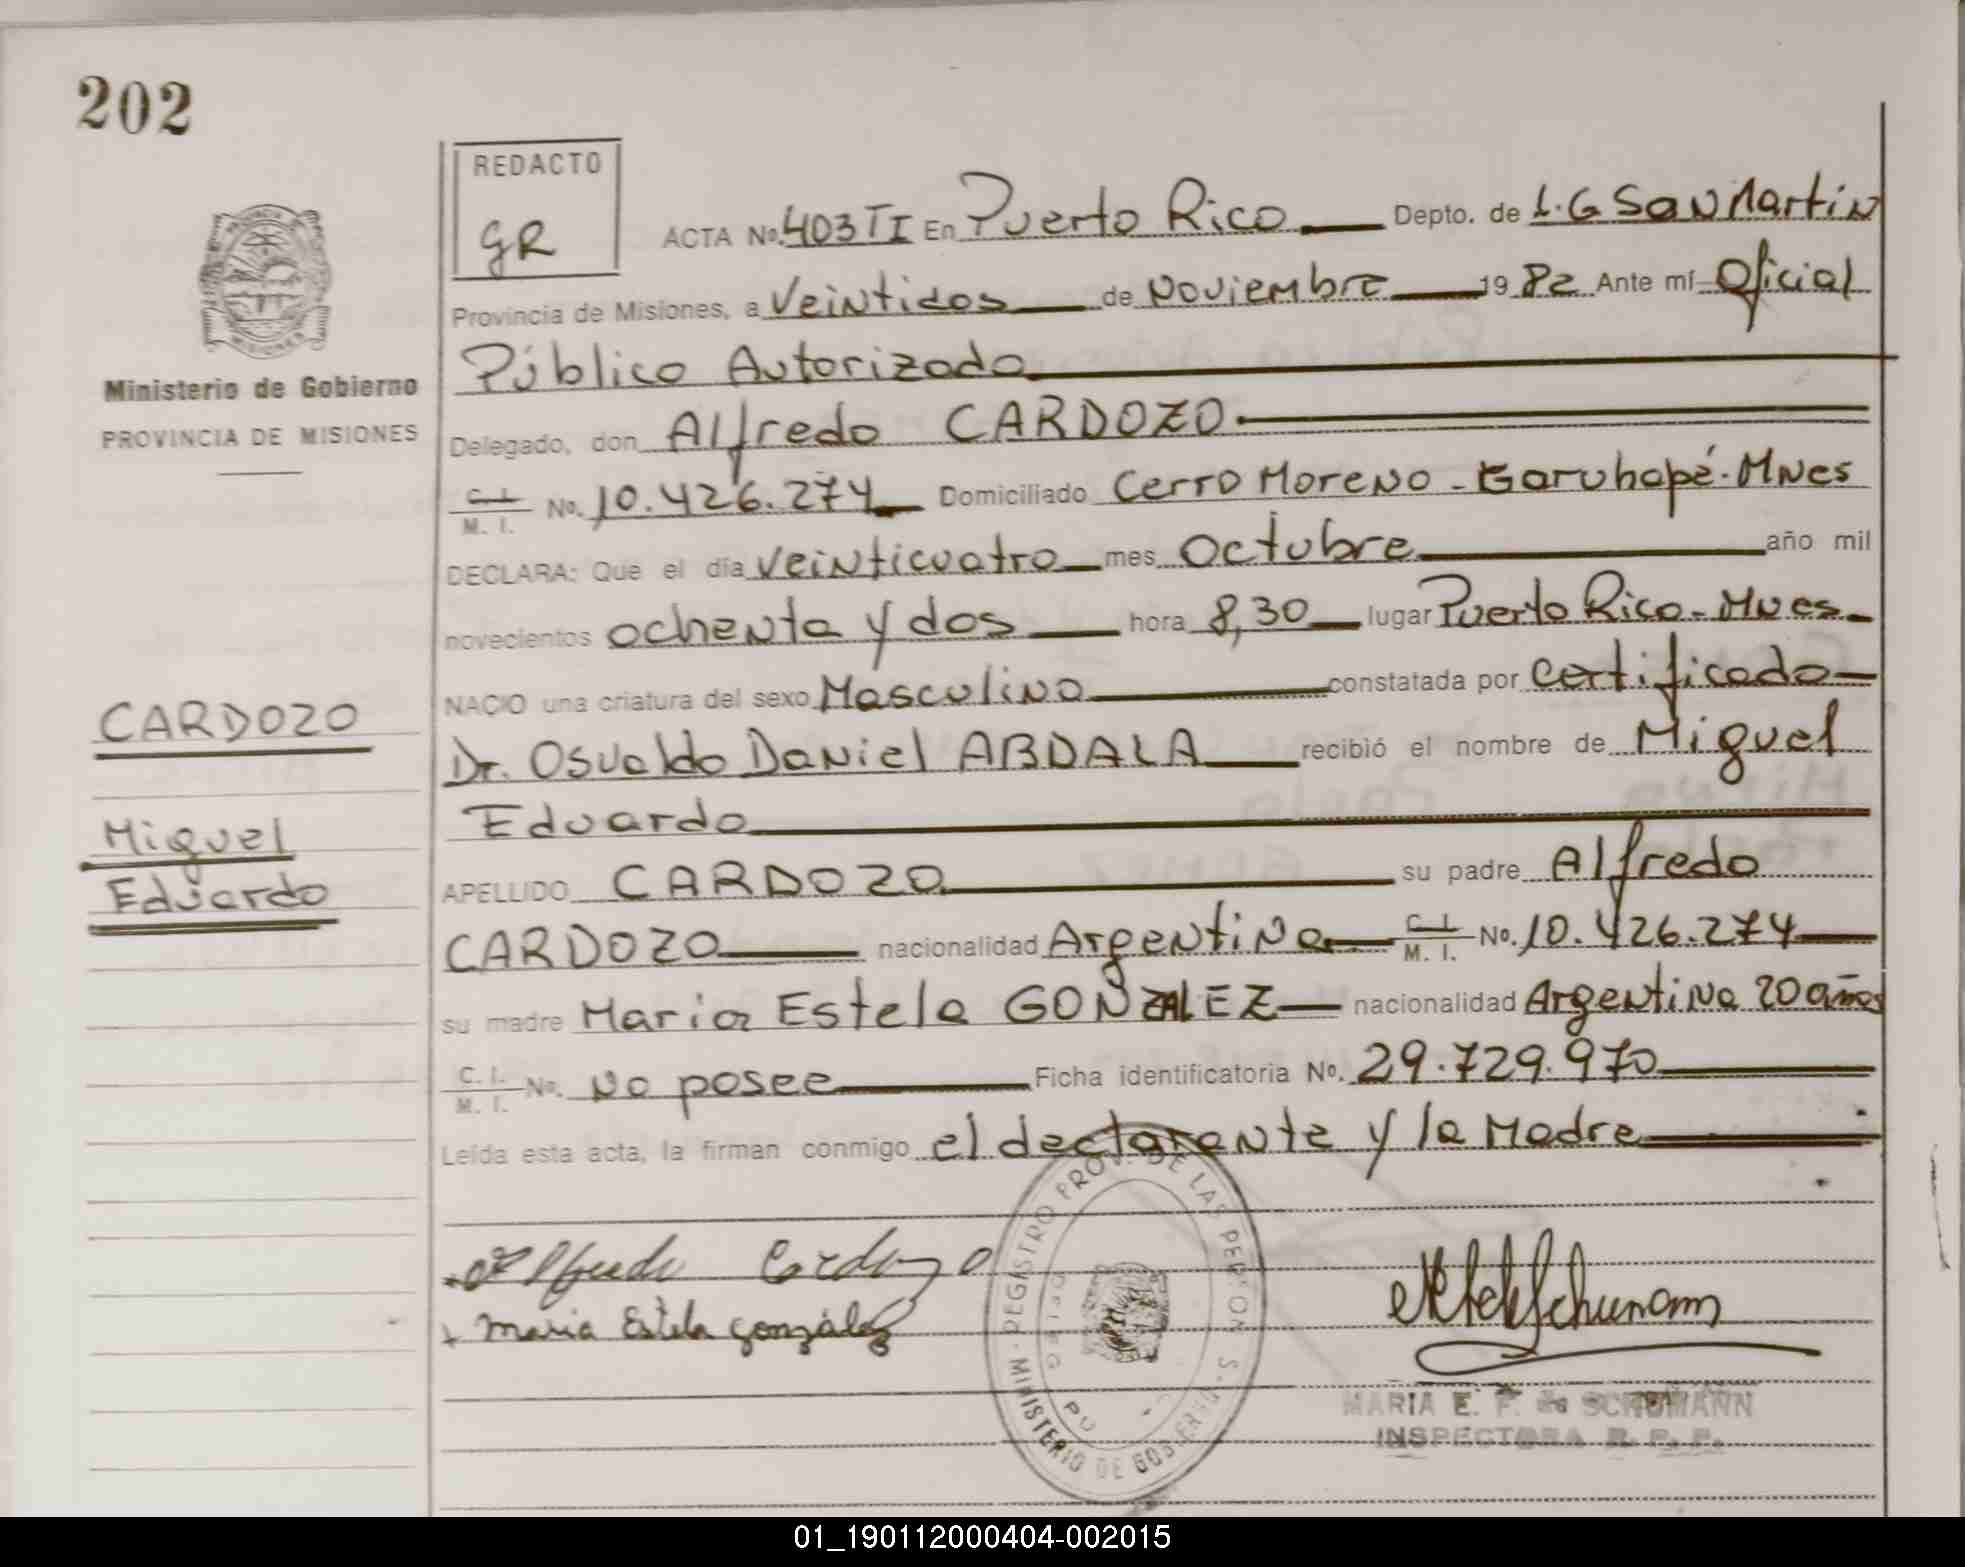 202
REDACTO
GR
ACTA No. 403 TI En Puerto Rico Depto. de L.G San Martin
Provincia de Misiones, a Veintidos de Noviembre 1982 Ante mí Oficial
Público Autorizado
Delegado, don Alfredo CARDOZO
C. I. M. I. No. 10.426.274 Domiciliado Cerro Moreno - Garuhapé - Mnes
DECLARA: Que el día veinticuatro mes Octubre año mil
novecientos ochenta y dos hora 8,30 lugar Puerto Rico - Mnes.
NACIO una criatura del sexo Masculino constatada por certificado
Dr. Osvaldo Daniel ABDALA recibió el nombre de Miguel
Eduardo
APELLIDO CARDOZO su padre Alfredo
CARDOZO nacionalidad Argentina C. I. M. I. No. 10.426.274
su madre Maria Estela GONZALEZ nacionalidad Argentina 20 años
C. I. M. I. No. No posee Ficha identificatoria No. 29.729.970
Leída esta acta, la firman conmigo el declarante y la Madre
Alfredo Cardozo
Maria Estela González
MARIA E. F. de SCHUMANN
INSPECTORA R. P. P.
PROVINCIA DE MISIONES
Ministerio de Gobierno
PROVINCIA DE MISIONES
CARDOZO
Miguel
Eduardo
MINISTERIO DE GOBIERNO - REGISTRO PROV. DE LAS PERSONAS
01_190112000404-002015